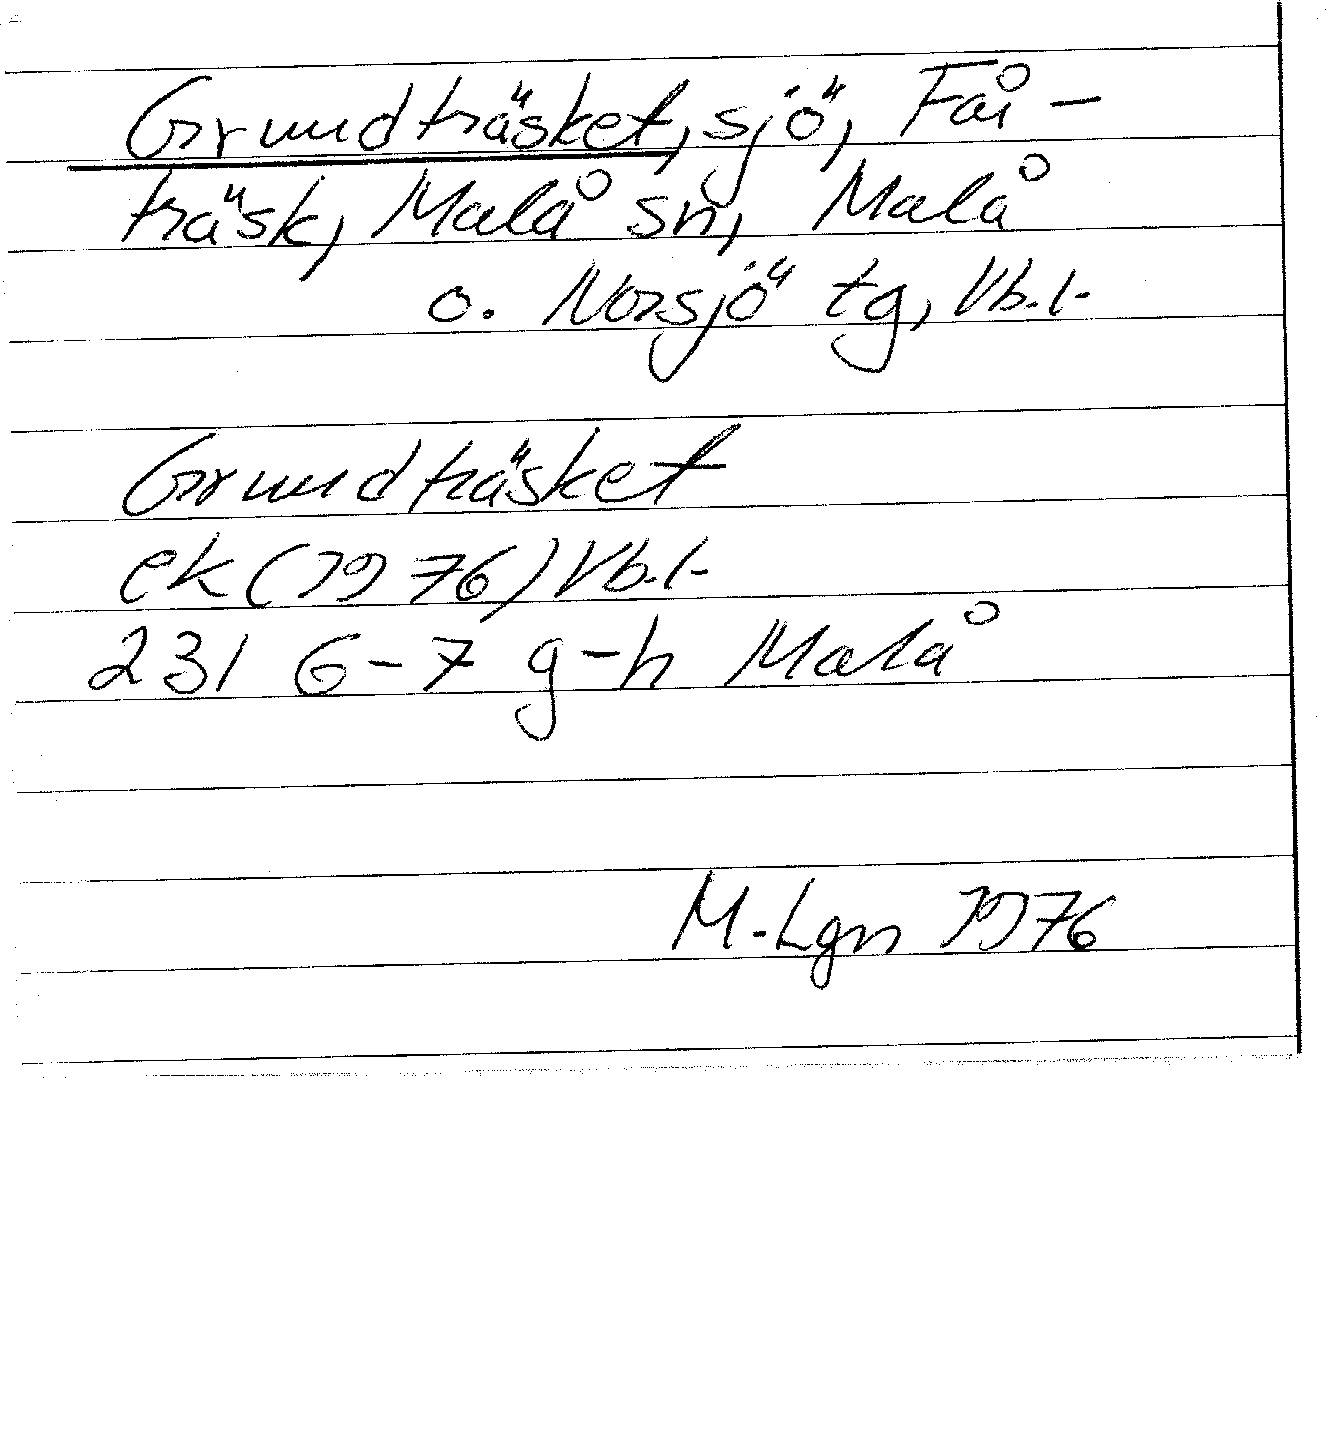 Grundträsket, sjö, Få-
träsk, Malå sn, Malå
o. Norsjö tg, Vb.l.
Grundträsket
ek (1976) Vb.l.
231 6-7 g-h Malå
M.Lgn 1976